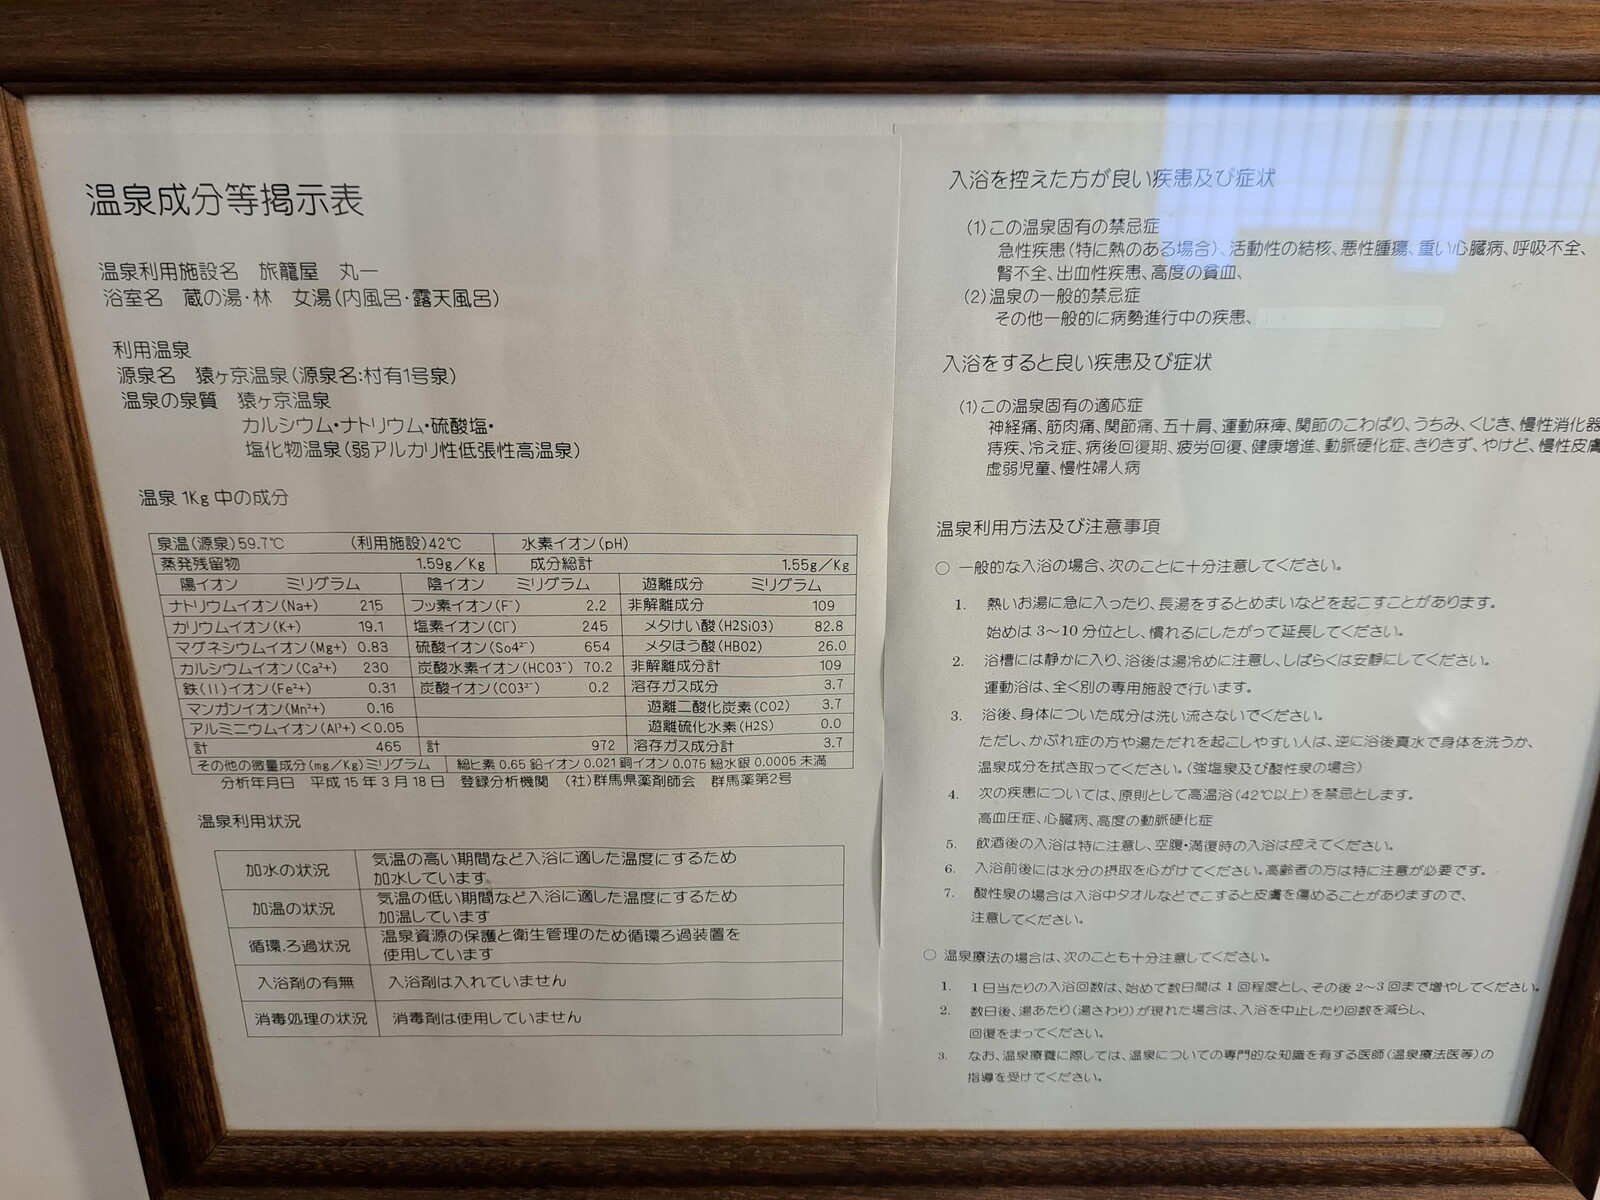 温泉成分等掲示表
温泉利用施設名 旅籠屋 丸一
浴室名 蔵の湯・林 女湯(内風呂・露天風呂)
利用温泉
源泉名 猿ヶ京温泉(源泉名:村有1号泉)
温泉の泉質 猿ヶ京温泉
カルシウム・ナトリウム・硫酸塩・
塩化物温泉(弱アルカリ性低張性高温泉)
温泉1Kg中の成分
泉温(源泉)59.7℃ (利用施設)42℃ 水素イオン(pH)
蒸発残留物 1.59g/Kg 成分総計 1.55g/Kg
陽イオン ミリグラム 陰イオン ミリグラム 遊離成分 ミリグラム
ナトリウムイオン(Na+) 215 フッ素イオン(F⁻) 2.2 非解離成分 109
カリウムイオン(K+) 19.1 塩素イオン(Cl⁻) 245 メタけい酸(H2SiO3) 82.8
マグネシウムイオン(Mg+) 0.83 硫酸イオン(So4²⁻) 654 メタほう酸(HBO2) 26.0
カルシウムイオン(Ca²+) 230 炭酸水素イオン(HCO3⁻) 70.2 非解離成分計 109
鉄(II)イオン(Fe²+) 0.31 炭酸イオン(CO3²⁻) 0.2 溶存ガス成分 3.7
マンガンイオン(Mn²+) 0.16 遊離二酸化炭素(CO2) 3.7
アルミニウムイオン(Al³+) <0.05 遊離硫化水素(H2S) 0.0
計 465 計 972 溶存ガス成分計 3.7
その他の微量成分(mg/Kg)ミリグラム 総ヒ素 0.65 鉛イオン 0.021 銅イオン 0.075 総水銀 0.0005 未満
分析年月日 平成15年3月18日 登録分析機関 (社)群馬県薬剤師会 群馬薬第2号
温泉利用状況
加水の状況 気温の高い期間など入浴に適した温度にするため
加水しています。
加温の状況 気温の低い期間など入浴に適した温度にするため
加温しています
循環、ろ過状況 温泉資源の保護と衛生管理のため循環ろ過装置を
使用しています
入浴剤の有無 入浴剤は入れていません
消毒処理の状況 消毒剤は使用していません
入浴を控えた方が良い疾患及び症状
(1)この温泉固有の禁忌症
急性疾患(特に熱のある場合)、活動性の結核、悪性腫瘍、重い心臓病、呼吸不全、
腎不全、出血性疾患、高度の貧血、
(2)温泉の一般的禁忌症
その他一般的に病勢進行中の疾患、
入浴をすると良い疾患及び症状
(1)この温泉固有の適応症
神経痛、筋肉痛、関節痛、五十肩、運動麻痺、関節のこわばり、うちみ、くじき、慢性消化器
痔疾、冷え症、病後回復期、疲労回復、健康増進、動脈硬化症、きりきず、やけど、慢性皮膚
虚弱児童、慢性婦人病
温泉利用方法及び注意事項
○ 一般的な入浴の場合、次のことに十分注意してください。
1. 熱いお湯に急に入ったり、長湯をするとめまいなどを起こすことがあります。
始めは3~10分位とし、慣れるにしたがって延長してください。
2. 浴槽には静かに入り、浴後は湯冷めに注意し、しばらくは安静にしてください。
運動浴は、全く別の専用施設で行います。
3. 浴後、身体についた成分は洗い流さないでください。
ただし、かぶれ症の方や湯ただれを起こしやすい人は、逆に浴後真水で身体を洗うか、
温泉成分を拭き取ってください。(強塩泉及び酸性泉の場合)
4. 次の疾患については、原則として高温浴(42℃以上)を禁忌とします。
高血圧症、心臓病、高度の動脈硬化症
5. 飲酒後の入浴は特に注意し、空腹・満復時の入浴は控えてください。
6. 入浴前後には水分の摂取を心がけてください。高齢者の方は特に注意が必要です。
7. 酸性泉の場合は入浴中タオルなどでこすると皮膚を傷めることがありますので、
注意してください。
○ 温泉療法の場合は、次のことも十分注意してください。
1. 1日当たりの入浴回数は、始めて数日間は1回程度とし、その後2~3回まで増やしてください。
2. 数日後、湯あたり(湯さわり)が現れた場合は、入浴を中止したり回数を減らし、
回復をまってください。
3. なお、温泉療養に際しては、温泉についての専門的な知識を有する医師(温泉療法医等)の
指導を受けてください。